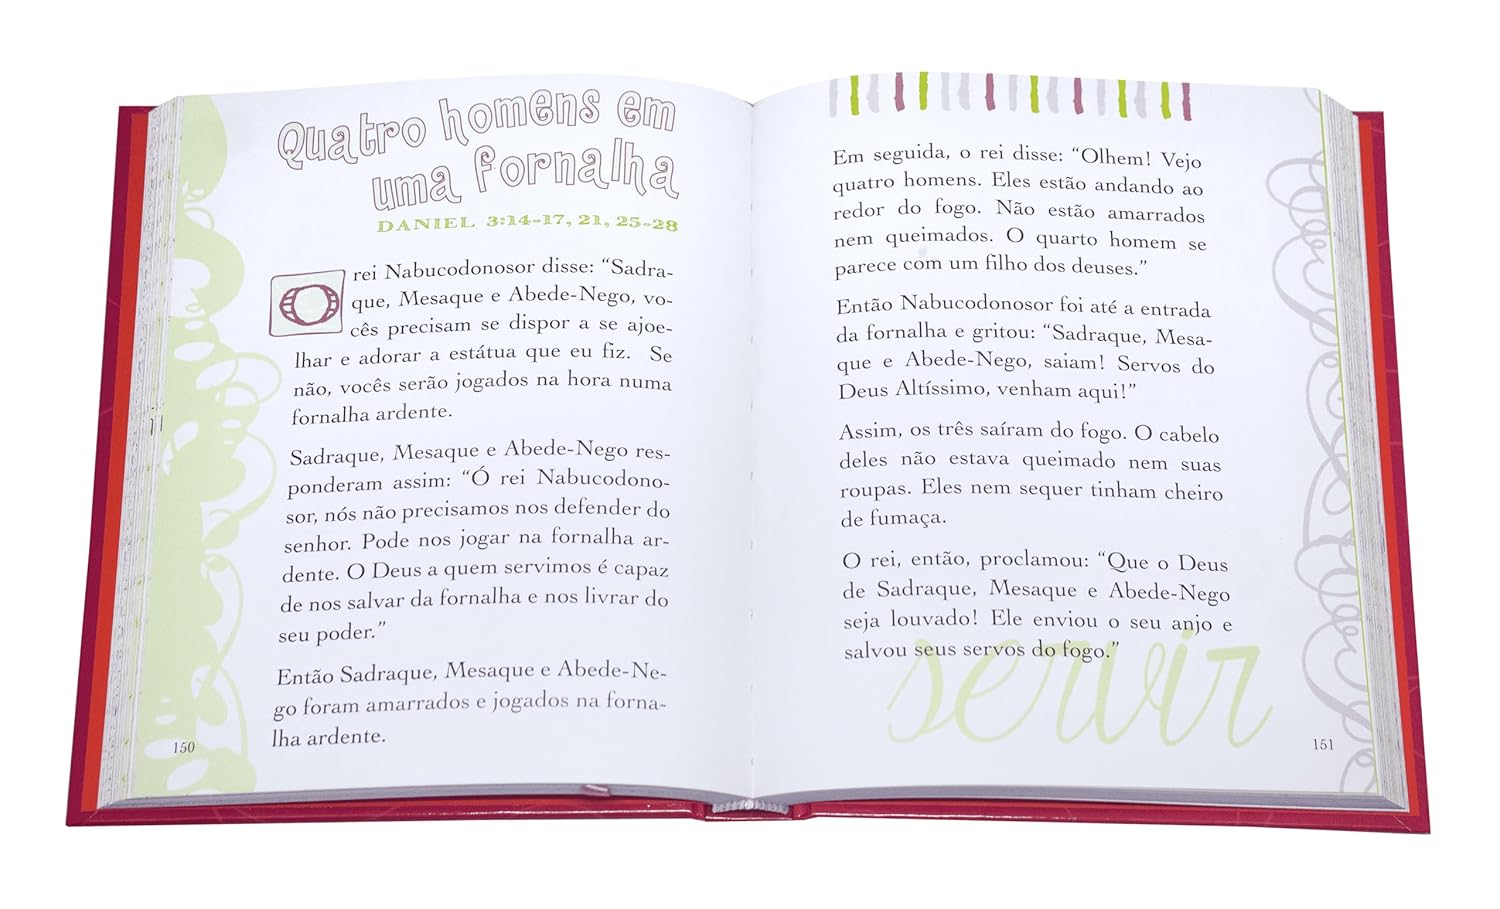 Quatro homens em
uma fornalha
DANIEL 3:14-17, 21, 25-28
O rei Nabucodonosor disse: “Sadra-
que, Mesaque e Abede-Nego, vo-
cês precisam se dispor a se ajoe-
lhar e adorar a estátua que eu fiz. Se
não, vocês serão jogados na hora numa
fornalha ardente.
Sadraque, Mesaque e Abede-Nego res-
ponderam assim: “Ó rei Nabucodono-
sor, nós não precisamos nos defender do
senhor. Pode nos jogar na fornalha ar-
dente. O Deus a quem servimos é capaz
de nos salvar da fornalha e nos livrar do
seu poder.”
Então Sadraque, Mesaque e Abede-Ne-
go foram amarrados e jogados na forna-
lha ardente.
150
Em seguida, o rei disse: “Olhem! Vejo
quatro homens. Eles estão andando ao
redor do fogo. Não estão amarrados
nem queimados. O quarto homem se
parece com um filho dos deuses.”
Então Nabucodonosor foi até a entrada
da fornalha e gritou: “Sadraque, Mesa-
que e Abede-Nego, saiam! Servos do
Deus Altíssimo, venham aqui!”
Assim, os três saíram do fogo. O cabelo
deles não estava queimado nem suas
roupas. Eles nem sequer tinham cheiro
de fumaça.
O rei, então, proclamou: “Que o Deus
de Sadraque, Mesaque e Abede-Nego
seja louvado! Ele enviou o seu anjo e
salvou seus servos do fogo.”
servir
151